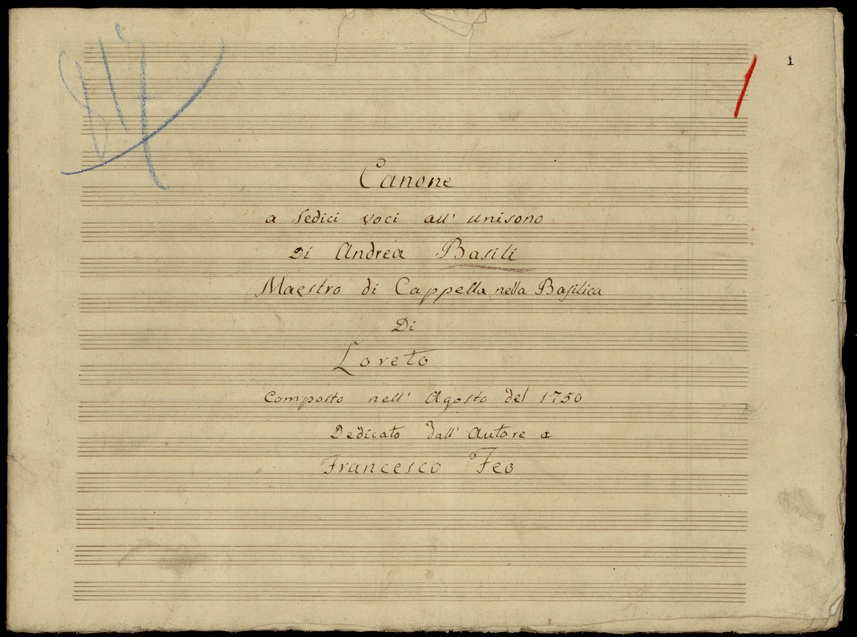 1
Canone
a Sedici voci all' unisono
Di Andrea Basili
Maestro di Cappella nella Basilica
Di
Loreto
Composto nell' Agosto del 1750
Dedicato dall' Autore a
Francesco Feo